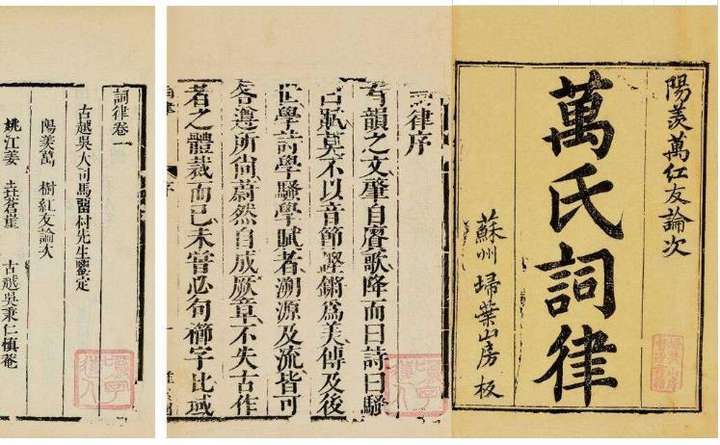 陽羨萬紅友論次
萬氏詞律
蘇州埽葉山房板
詞律序
有韻之文肇自賡歌降而曰詩曰騷
曰賦莫不以音節鏗鏘爲美傳及後
世學詩學騷學賦者溯源及流皆可
各遵所尚蔚然自成厥章不失古作
者之體裁而已未嘗必句櫛字比或
詞律卷一
古越吳大司馬留村先生鑒定
陽羨萬樹紅友論次
姚江姜垚蒼崖
古越吳秉仁慎菴